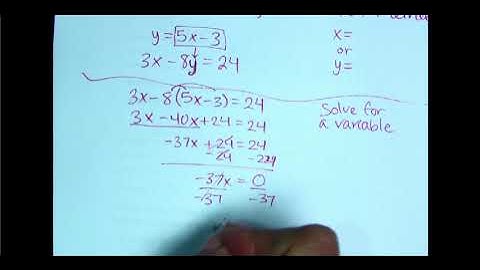 y = 5x - 3
3x - 8y = 24
x=
or
y=
3x - 8(5x - 3) = 24
3x - 40x + 24 = 24
-37x + 24 = 24
- 24 - 24
-37x = 0
-37 -37
Solve for
a variable